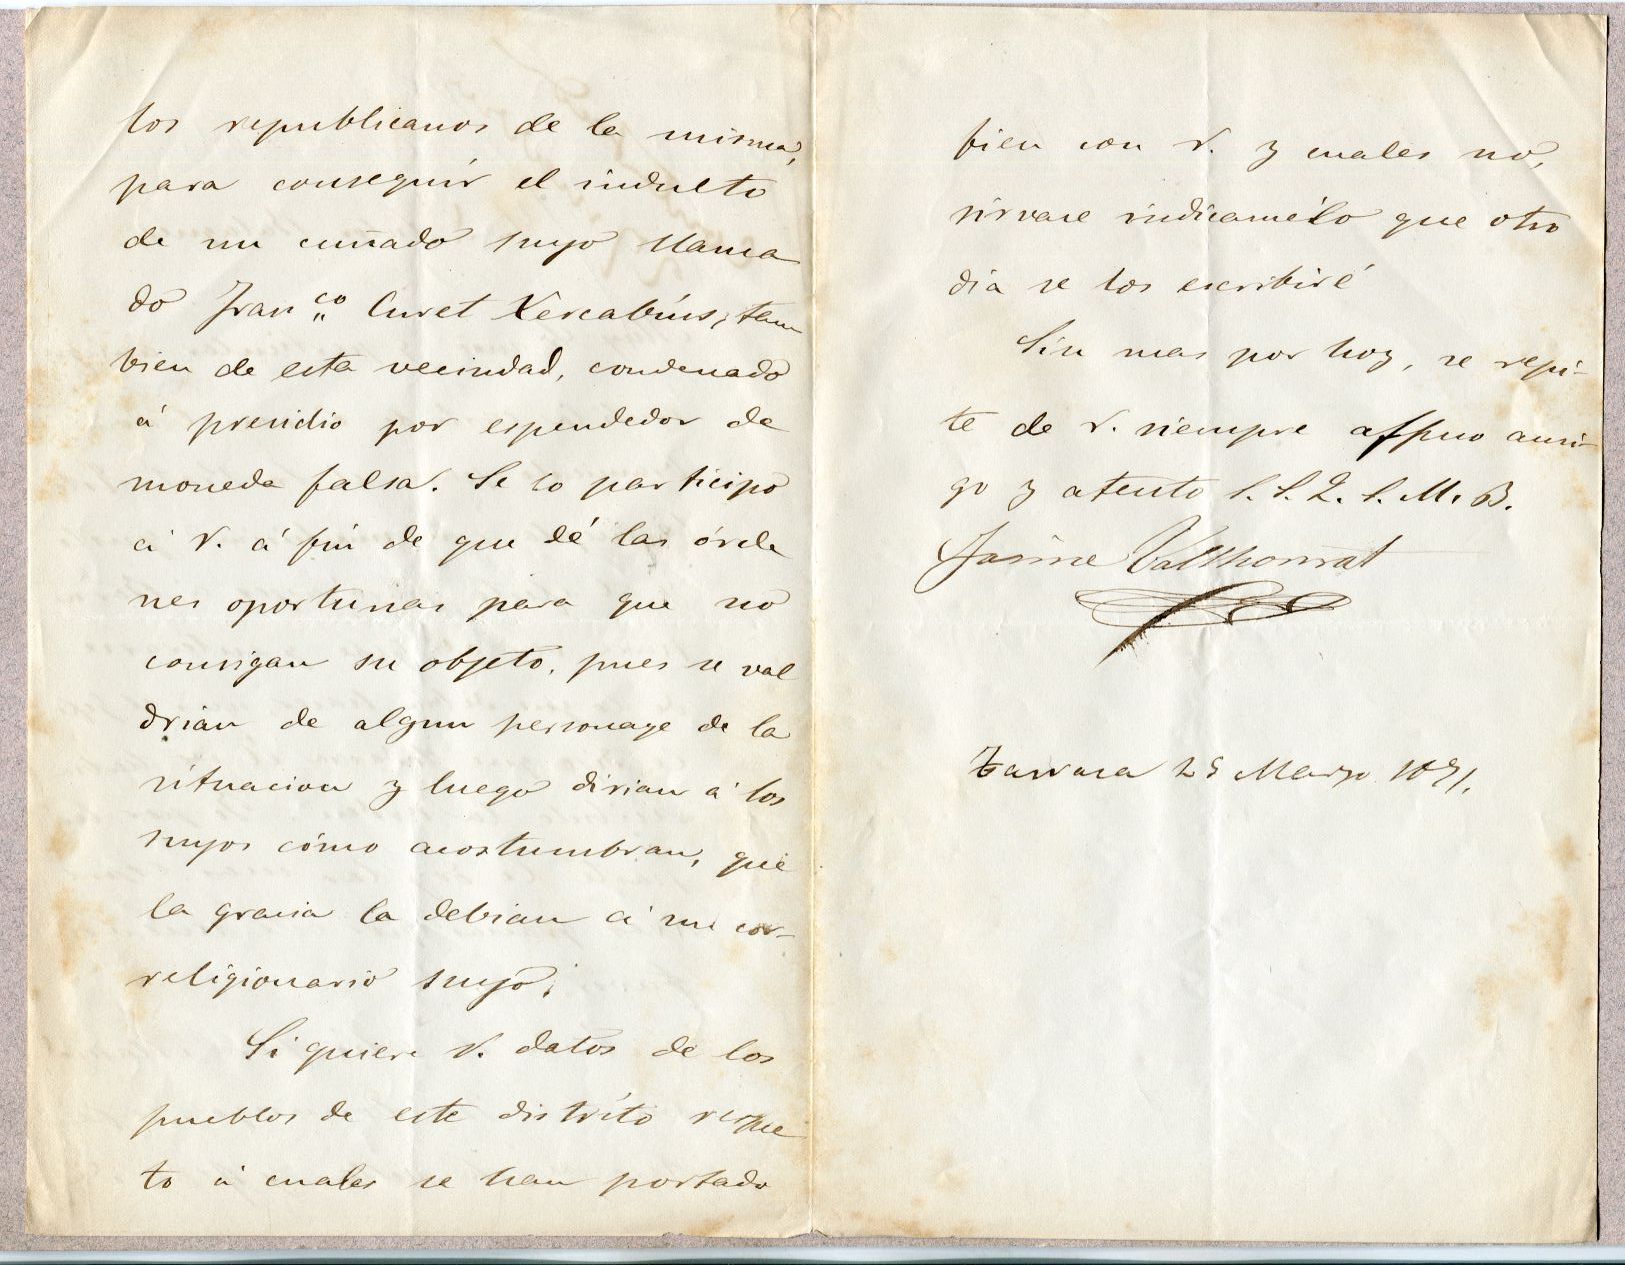 los republicanos de la misma,
para conseguir el indulto
de un cuñado suyo llama
do Fran.co Curet Xercabíns, tam
bien de esta vecindad, condenado
á presidio por espendedor de
moneda falsa. Se lo participo
á V. á fin de que dé las órde
nes oportunas para que no
consigan su objeto, pues se val
drian de algun personage de la
situacion y luego dirian á los
suyos cómo acostumbran, que
la gracia la debian á un cor-
religionario suyo.
Si quiere V. datos de los
pueblos de este distrito respe
to á cuales se han portado
bien con V. y cuales no,
sirvase indicamélo que otro
dia se los escribiré
Sin mas por hoy, se repi-
te de V. siempre affmo ami-
go y atento S. S. Q. S. M. B.
Jaime Vallhonrat
Tarrasa 25 Marzo 1871.